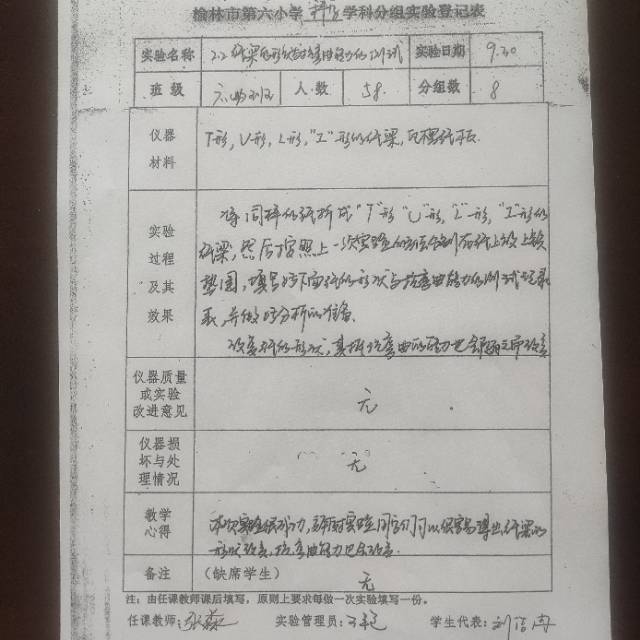 榆林市第六小学 科学 学科分组实验登记表
实验名称 2.2 纸梁的形状对弯曲能力的测试 实验日期 9.30
班级 六 班 人数 58 分组数 8
仪器材料 T形, U形, L形, "工"形的纸梁, 瓦楞纸板.
实验过程及其效果
将同样的纸折成"T"形 "U"形, "L"形, "工"形的
纸梁, 然后按照上一次实验的方法分别在纸上放上铁
垫圈, 填写好不同纸的形状与抗弯曲能力的测试记录
表, 并做好分析的准备.
改变纸的形状, 其抗弯曲的能力也 随之而改变
仪器质量或实验改进意见 无
仪器损坏与处理情况 无
教学心得
本次实验很成功, 实验 同学们可以很容易得出, 纸梁的
形状改变, 抗弯曲能力也会改变.
备注 (缺席学生) 无
注：由任课教师课后填写，原则上要求每做一次实验填写一份。
任课教师: 张 实验管理员: 学生代表: 刘